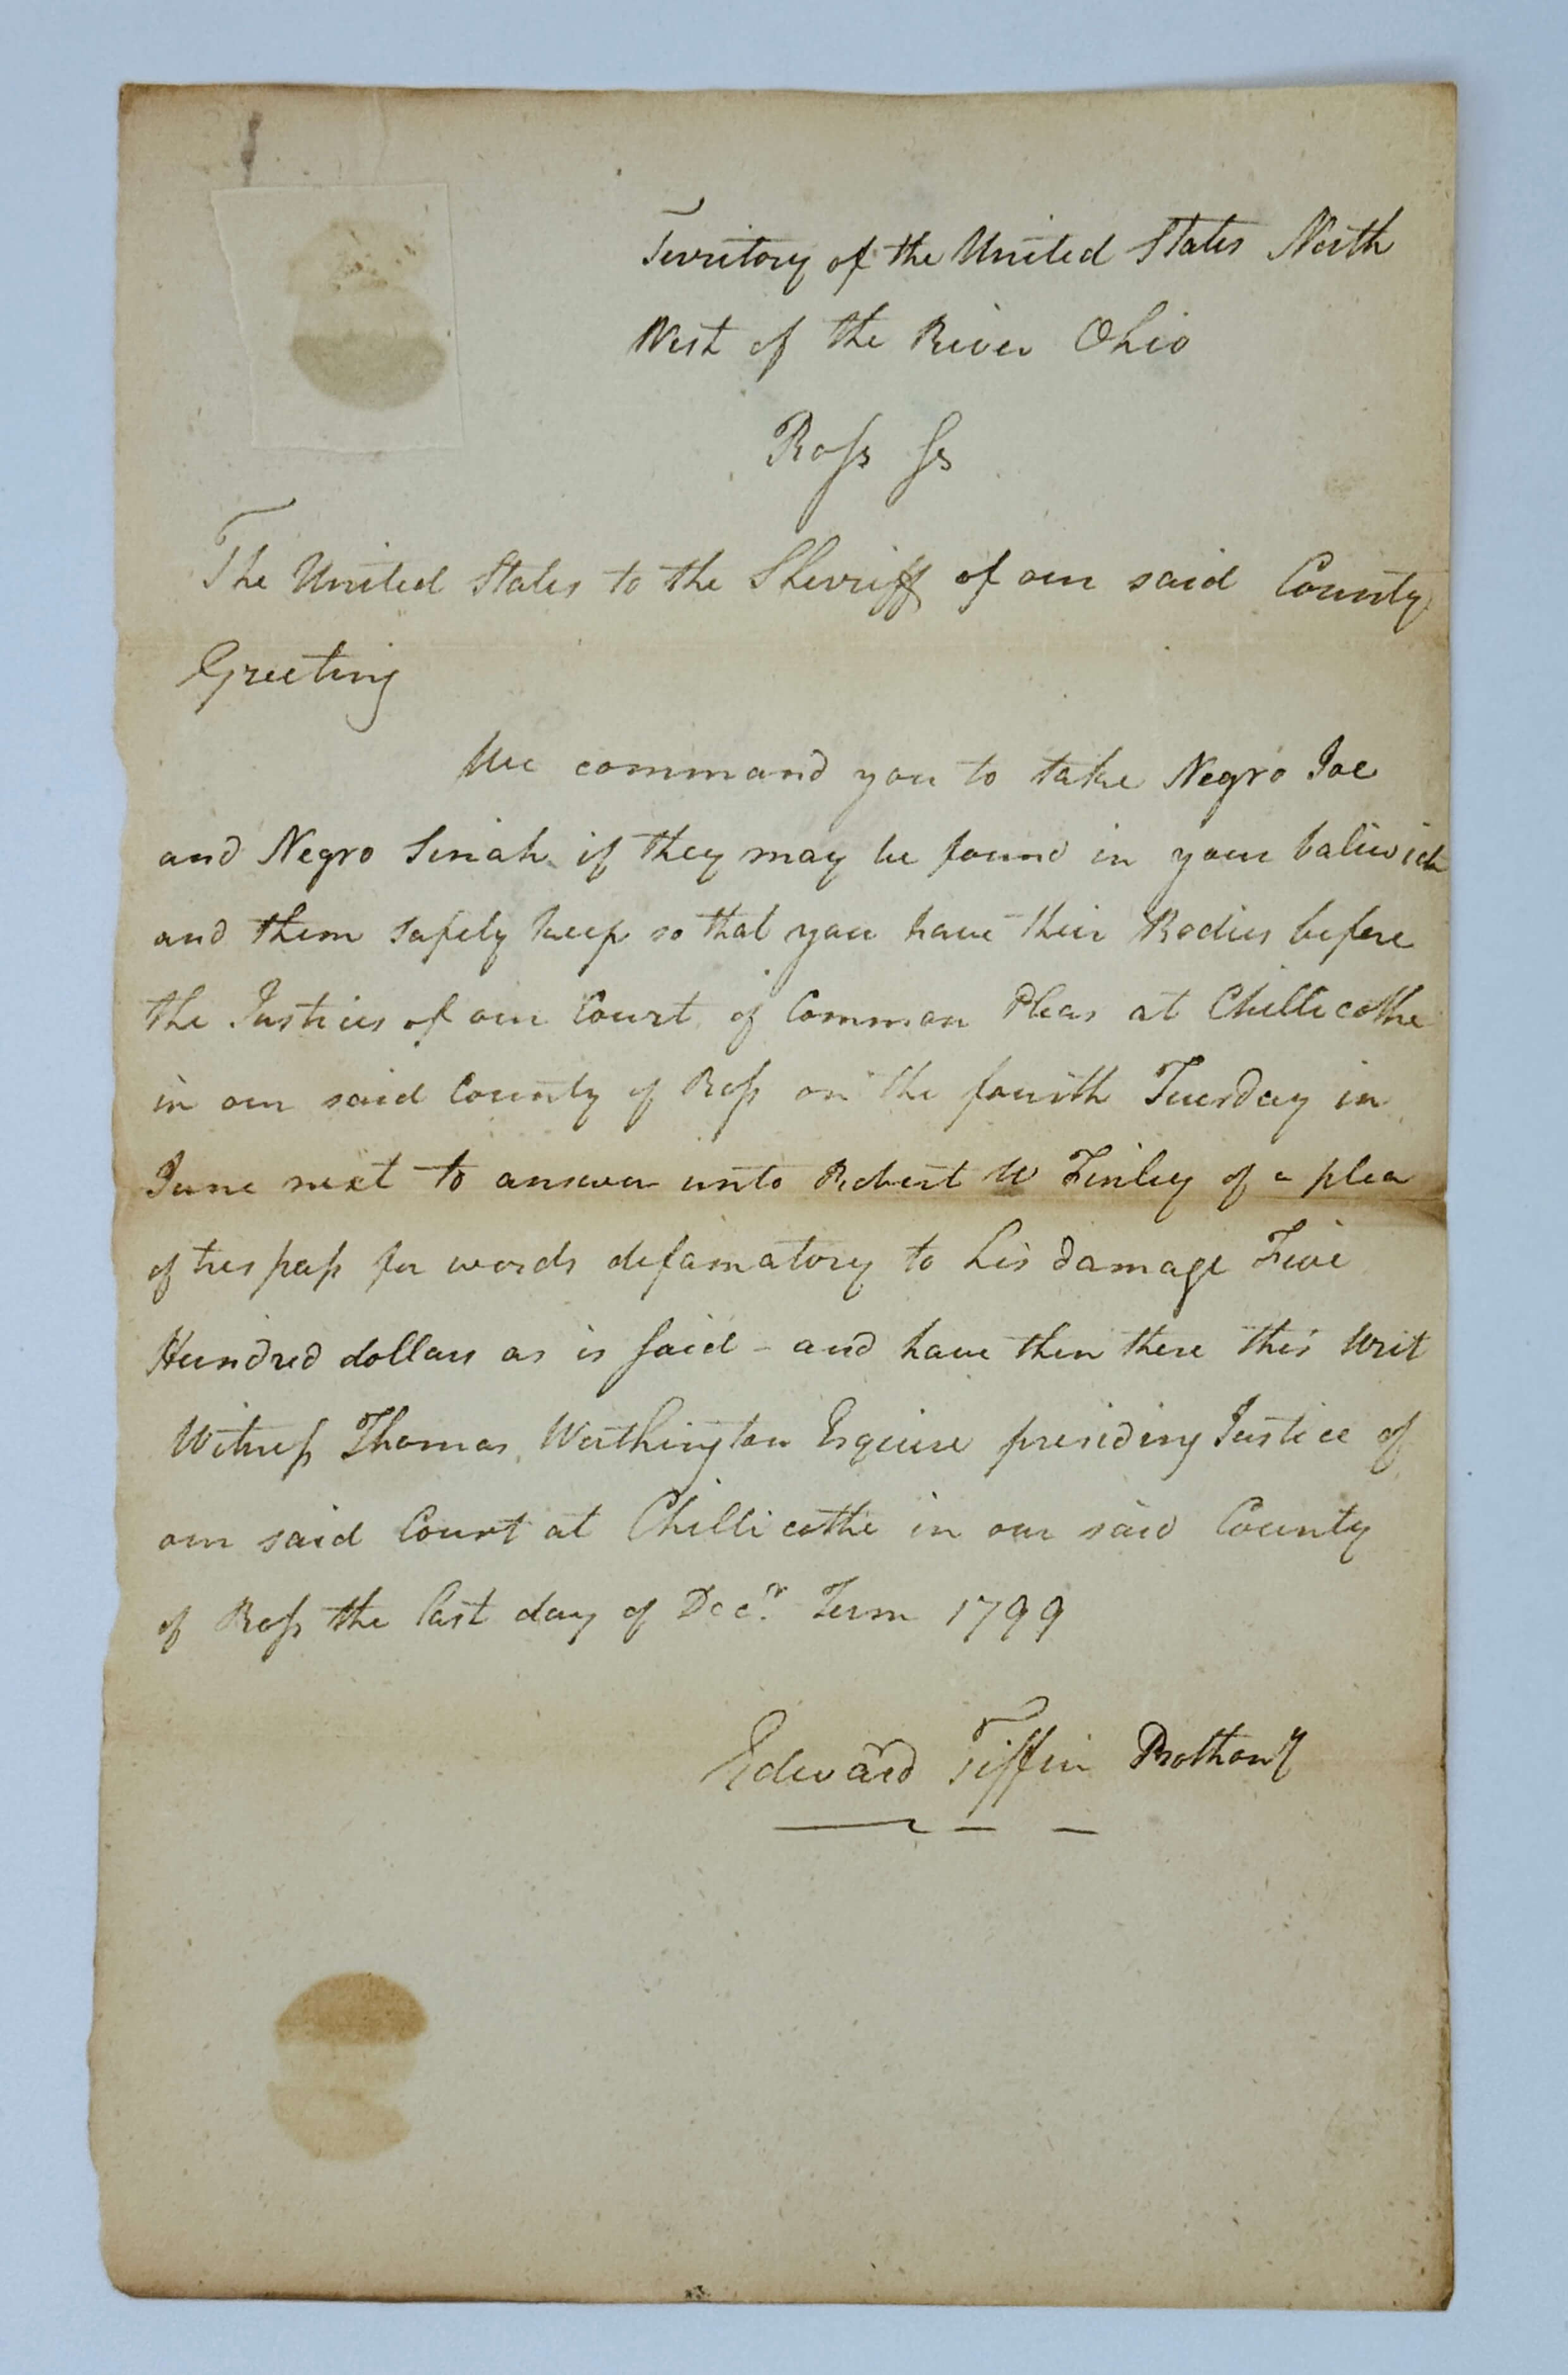 Territory of the United States North
West of the River Ohio
Ross Ss
The United States to the Sherriff of our said County
Greeting
We command you to take Negro Joe
and Negro Sinah if they may be found in your baliwick
and them safely keep so that you have their Bodies before
the Justices of our Court of Common Pleas at Chillicothe
in our said County of Ross on the fourth Tuesday in
June next to answer unto Robert W Finley of a plea
of trespass for words defamatory to his damage Five
Hundred dollars as is said - and have then there this Writ
Witness Thomas Worthington Esquire presiding Justice of
our said Court at Chillicothe in our said County
of Ross the last day of Decr. Term 1799
Edward Tiffin Prothony